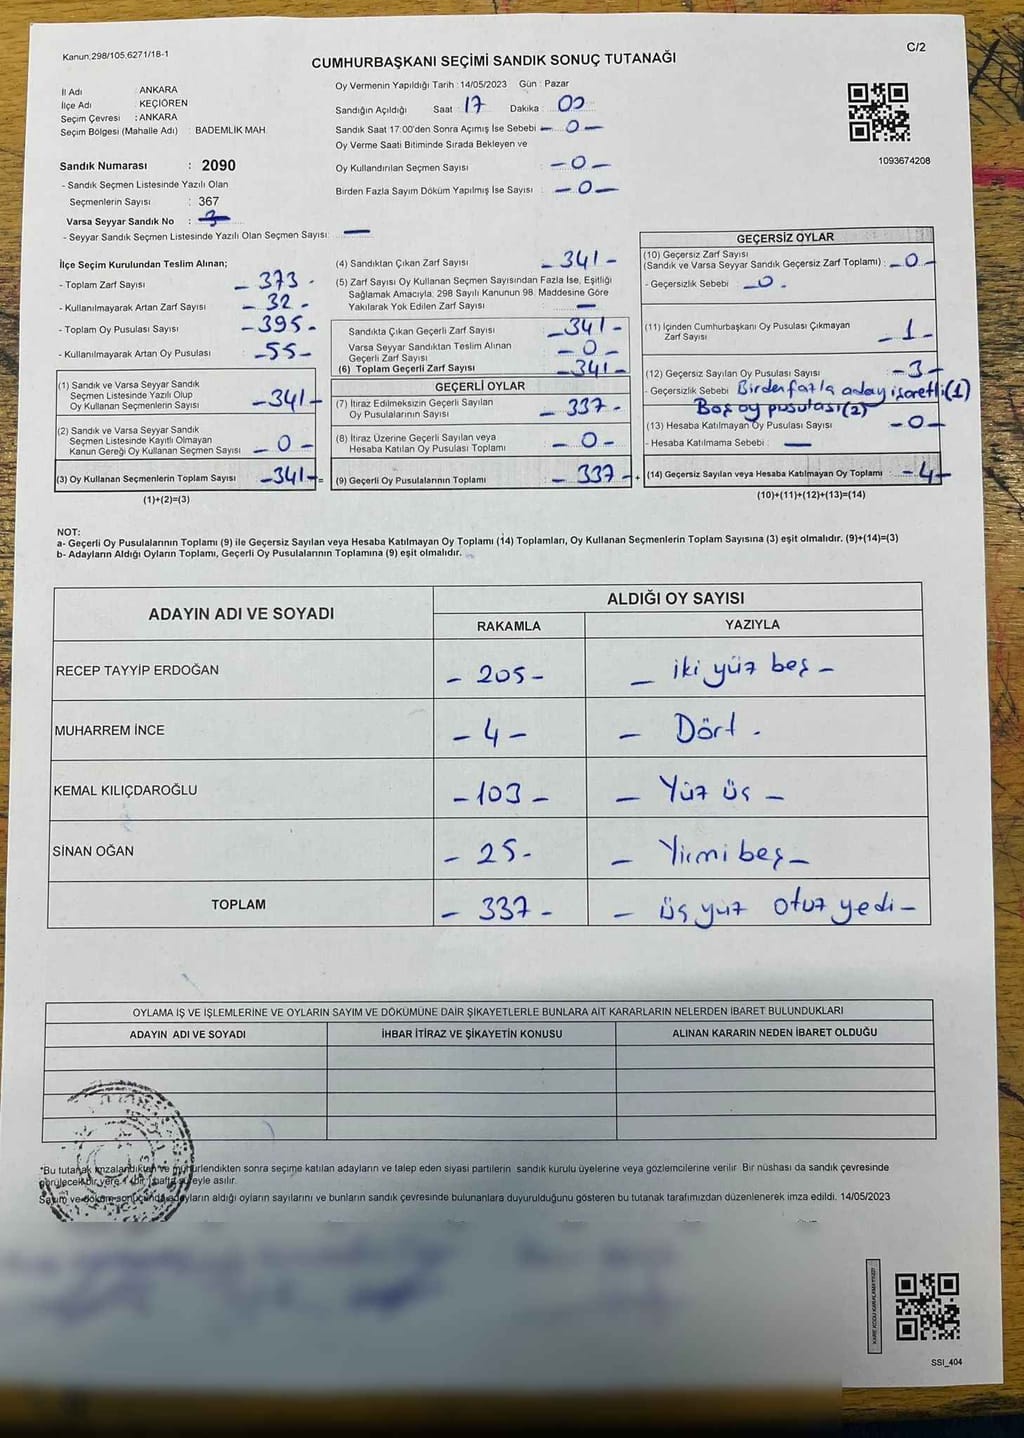 Kanun:298/105,6271/18-1
C/2
CUMHURBAŞKANI SEÇİMİ SANDIK SONUÇ TUTANAĞI
İl Adı : ANKARA
İlçe Adı : KEÇİÖREN
Seçim Çevresi : ANKARA
Seçim Bölgesi (Mahalle Adı) : BADEMLİK MAH.
Sandık Numarası : 2090
- Sandık Seçmen Listesinde Yazılı Olan
Seçmenlerin Sayısı : 367
Varsa Seyyar Sandık No :
- Seyyar Sandık Seçmen Listesinde Yazılı Olan Seçmen Sayısı: —
Oy Vermenin Yapıldığı Tarih : 14/05/2023 Gün : Pazar
Sandığın Açıldığı Saat : 17 Dakika : 00
Sandık Saat 17:00'den Sonra Açımış İse Sebebi — 0 —
Oy Verme Saati Bitiminde Sırada Bekleyen ve
Oy Kullandırılan Seçmen Sayısı : — 0 —
Birden Fazla Sayım Döküm Yapılmış İse Sayısı : — 0 —
1093674208
İlçe Seçim Kurulundan Teslim Alınan;
- Toplam Zarf Sayısı - 373 -
- Kullanılmayarak Artan Zarf Sayısı - 32 -
- Toplam Oy Pusulası Sayısı - 395 -
- Kullanılmayarak Artan Oy Pusulası - 55 -
(1) Sandık ve Varsa Seyyar Sandık
Seçmen Listesinde Yazılı Olup
Oy Kullanan Seçmenlerin Sayısı - 341 -
(2) Sandık ve Varsa Seyyar Sandık
Seçmen Listesinde Kayıtlı Olmayan
Kanun Gereği Oy Kullanan Seçmen Sayısı - 0 -
(3) Oy Kullanan Seçmenlerin Toplam Sayısı - 341 - =
(1)+(2)=(3)
(4) Sandıktan Çıkan Zarf Sayısı - 341 -
(5) Zarf Sayısı Oy Kullanan Seçmen Sayısından Fazla İse, Eşitliği
Sağlamak Amacıyla, 298 Sayılı Kanunun 98. Maddesine Göre
Yakılarak Yok Edilen Zarf Sayısı : —
Sandıkta Çıkan Geçerli Zarf Sayısı - 341 -
Varsa Seyyar Sandıktan Teslim Alınan
Geçerli Zarf Sayısı - 0 -
(6) Toplam Geçerli Zarf Sayısı - 341 -
GEÇERLİ OYLAR
(7) İtiraz Edilmeksizin Geçerli Sayılan
Oy Pusulalarının Sayısı - 337 -
(8) İtiraz Üzerine Geçerli Sayılan veya
Hesaba Katılan Oy Pusulası Toplamı - 0 -
(9) Geçerli Oy Pusulalarının Toplamı - 337 - +
GEÇERSİZ OYLAR
(10) Geçersiz Zarf Sayısı
(Sandık ve Varsa Seyyar Sandık Geçersiz Zarf Toplamı) : - 0 -
- Geçersizlik Sebebi : - 0 -
(11) İçinden Cumhurbaşkanı Oy Pusulası Çıkmayan
Zarf Sayısı - 1 -
(12) Geçersiz Sayılan Oy Pusulası Sayısı - 3 -
- Geçersizlik Sebebi Birden fazla aday işaretli (1)
Boş oy pusulası (2)
(13) Hesaba Katılmayan Oy Pusulası Sayısı - 0 -
- Hesaba Katılmama Sebebi : —
(14) Geçersiz Sayılan veya Hesaba Katılmayan Oy Toplamı : - 4 -
(10)+(11)+(12)+(13)=(14)
NOT:
a- Geçerli Oy Pusulalarının Toplamı (9) ile Geçersiz Sayılan veya Hesaba Katılmayan Oy Toplamı (14) Toplamları, Oy Kullanan Seçmenlerin Toplam Sayısına (3) eşit olmalıdır. (9)+(14)=(3)
b- Adayların Aldığı Oyların Toplamı, Geçerli Oy Pusulalarının Toplamına (9) eşit olmalıdır.
ADAYIN ADI VE SOYADI ALDIĞI OY SAYISI
RAKAMLA YAZIYLA
RECEP TAYYİP ERDOĞAN - 205 - - iki yüz beş -
MUHARREM İNCE - 4 - - Dört -
KEMAL KILIÇDAROĞLU - 103 - - Yüz üç -
SİNAN OĞAN - 25 - - Yirmi beş -
TOPLAM - 337 - - üç yüz otuz yedi -
OYLAMA İŞ VE İŞLEMLERİNE VE OYLARIN SAYIM VE DÖKÜMÜNE DAİR ŞİKAYETLERLE BUNLARA AİT KARARLARIN NELERDEN İBARET BULUNDUKLARI
ADAYIN ADI VE SOYADI İHBAR İTİRAZ VE ŞİKAYETİN KONUSU ALINAN KARARIN NEDEN İBARET OLDUĞU
*Bu tutanak imzalandıktan ve mühürlendikten sonra seçime katılan adayların ve talep eden siyasi partilerin sandık kurulu üyelerine veya gözlemcilerine verilir. Bir nüshası da sandık çevresinde
görülecek bir yere 1 (bir) hafta süreyle asılır.
Sayım ve döküm sonucunda adayların aldığı oyların sayılarını ve bunların sandık çevresinde bulunanlara duyurulduğunu gösteren bu tutanak tarafımızdan düzenlenerek imza edildi. 14/05/2023
SSI_404